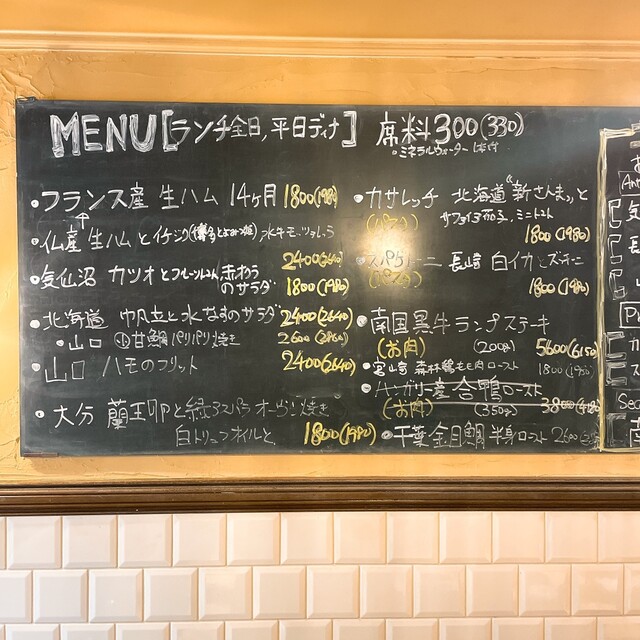 MENU [ランチ全日, 平日ディナ] 席料 300(330)
・ミネラルウォーター
・フランス産 生ハム 14ヶ月 1800(1980)
・仏産 生ハムとイチジク 水牛モッツァレラ
2400(2640)
・気仙沼 カツオとフルーツトマト 赤わう
のサラダ 1800(1980)
・北海道 帆立と水なすのサラダ 2400(2640)
・山口 甘鯛パリパリ焼き 2600(2860)
・山口 ハモのフリット 2400(2640)
・大分 蘭王卵と緑アスパラ オーブン焼き
白トリュフオイルと 1800(1980)
・カサレッチ 北海道"新さんま"と
(パスタ) サフォイア茄子、ミニトマト
1800(1980)
・スパゲトーニ 長崎 白イカとズッキーニ
(パスタ) 1800(1980)
・南国黒牛 ランプステーキ
(お肉) (200g) 5600(6150)
・宮崎 森林鶏もも肉ロースト 1800(1980)
・ハンガリー産合鴨ロースト
(お肉) (350g) 3800(4180)
・千葉 金目鯛 半身ロースト 2600